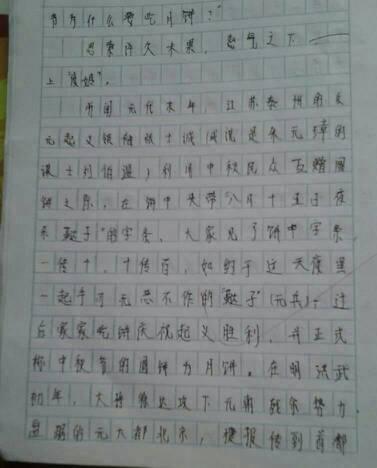 节为什么要吃月饼？"
思索许久未果，一气之下——
上"度娘"。
传闻元代末年，江苏泰州的反
元起义领袖张士诚(或说是朱元璋的
谋士刘伯温)利用中秋民众互赠圆
饼之际，在饼中夹带"八月十五子夜
杀鞑子"的字条，大家见了饼中字条
一传十，十传百，如约于这天夜里
一起手刃无恶不作的"鞑子"(元兵)，过
后家家吃饼庆祝起义胜利，并正式
称中秋节的圆饼为月饼。在明洪武
初年，大将徐达攻下元朝残余势力
盘踞的元大都北京，捷报传到首都